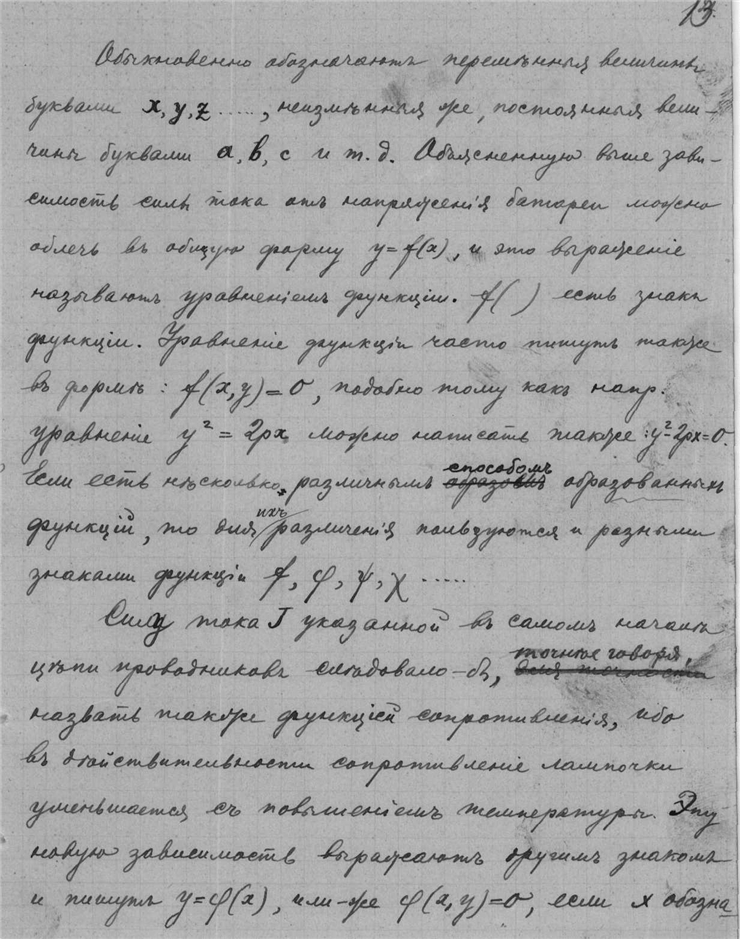 13.
Обыкновенно обозначаютъ перемѣнныя величины
буквами x, y, z ....., неизмѣнныя же, постоянныя вели-
чины буквами a, b, c и т. д. Объясненную выше зави-
симость силы тока отъ напряженія батареи можно
облечь въ общую форму y=f(x), и это выраженіе
называютъ уравненіемъ функціи. f( ) есть знакъ
функціи. Уравненіе функціи часто пишутъ также
въ формѣ: f(x,y)=0, подобно тому какъ напр.
уравненіе y² = 2px можно написать также: y²-2px=0.
Если есть нѣсколько, различнымъ способомъ образованныхъ
функцій, то для ихъ различенія пользуются и разными
знаками функціи f, φ, ψ, χ .....
Силу тока J указанной въ самомъ началѣ
цѣпи проводниковъ слѣдовало-бъ, точнѣе говоря,
назвать также функціей сопротивленія, ибо
въ дѣйствительности сопротивленіе лампочки
уменьшается съ повышеніемъ температуры. Эту
новую зависимость выражаютъ другимъ знакомъ
и пишутъ y=φ(x), или-же φ(x,y)=0, если x обозна-